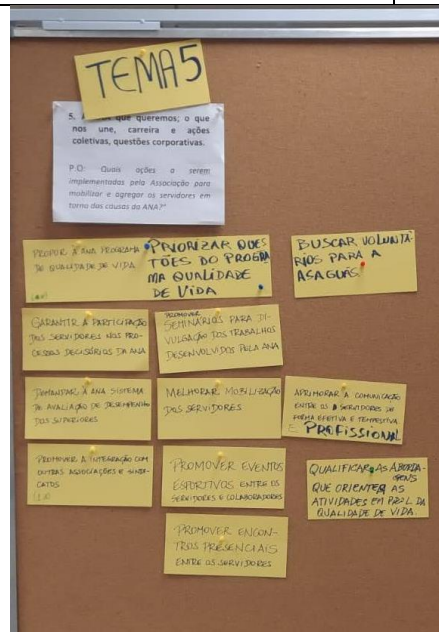 TEMA 5
5. A que queremos; o que
nos une, carreira e ações
coletivas, questões corporativas.
P.O: Quais ações a serem
implementadas pela Associação para
mobilizar e agregar os servidores em
torno das causas da ANA?"
PROPOR À ANA PROGRAMA
DE QUALIDADE DE VIDA
PRIORIZAR QUES
TÕES DO PROGRA
MA QUALIDADE
DE VIDA
BUSCAR VOLUNTÁ-
RIOS PARA A
ASAGUAS
GARANTIR A PARTICIPAÇÃO
DOS SERVIDORES NOS PRO-
CESSOS DECISÓRIOS DA ANA
PROMOVER
SEMINÁRIOS PARA DI-
VULGAÇÃO DOS TRABALHOS
DESENVOLVIDOS PELA ANA
DEMANDAR À ANA SISTEMA
DE AVALIAÇÃO DE DESEMPENHO
DOS SUPERIORES
MELHORAR MOBILIZAÇÃO
DOS SERVIDORES
APRIMORAR A COMUNICAÇÃO
ENTRE OS SERVIDORES DE
FORMA EFETIVA E TEMPESTIVA
E PROFISSIONAL
PROMOVER A INTEGRAÇÃO COM
OUTRAS ASSOCIAÇÕES E SINDI-
CATOS
PROMOVER EVENTOS
ESPORTIVOS ENTRE OS
SERVIDORES E COLABORADORES
QUALIFICAR AS ABORDA-
GENS
QUE ORIENTEM AS
ATIVIDADES EM PROL DA
QUALIDADE DE VIDA.
PROMOVER ENCON-
TROS PRESENCIAIS
ENTRE OS SERVIDORES